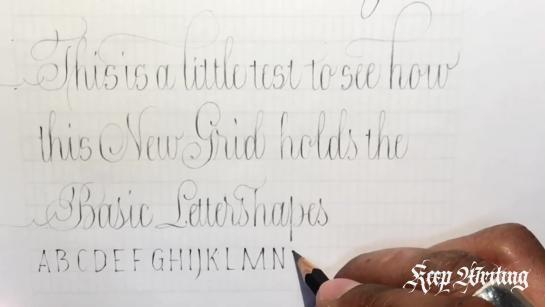 This is a little test to see how
this New Grid holds the
Basic Lettershapes
A B C D E F G H I J K L M N
Keep Writing